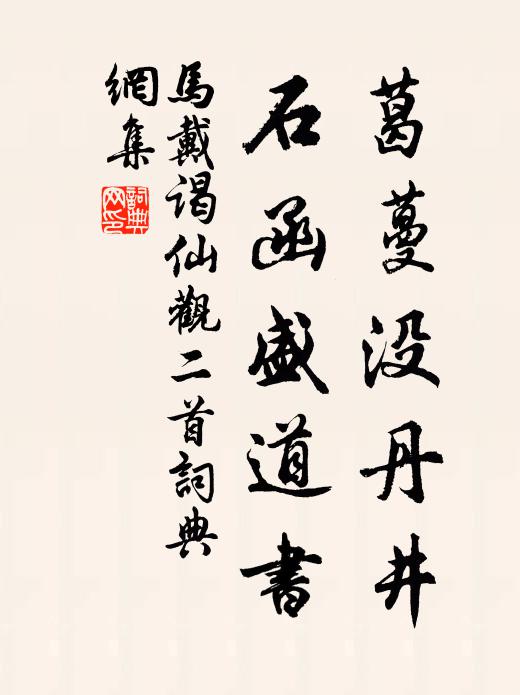 葛蔓没丹井
石函盛道書
馬戴謁仙觀二首詞典
網集
詞典網印